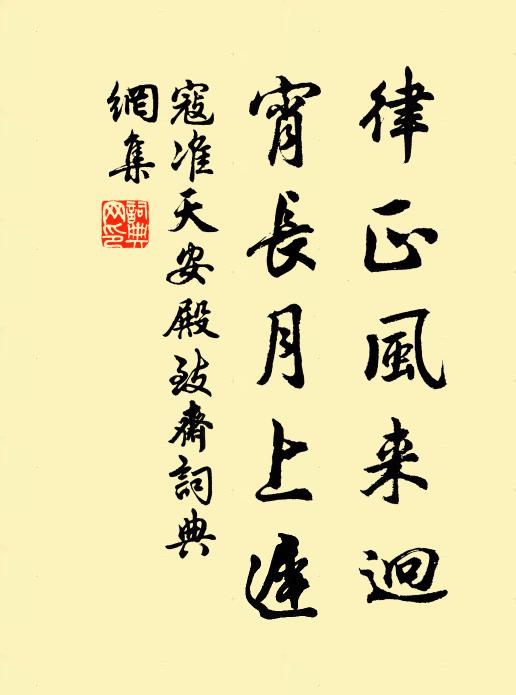 律正風来迥
宵長月上遲
寇准天安殿致齋詞典
網集
詞典網印